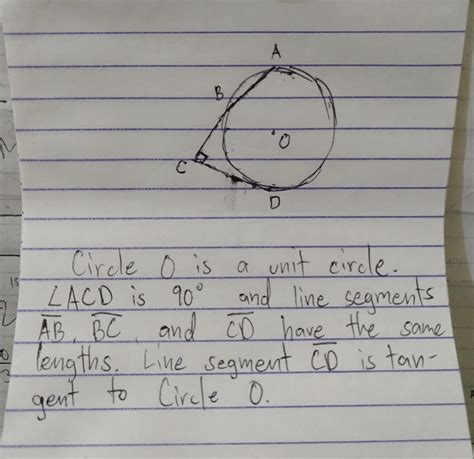 A
B
O
C
D
Circle O is a unit circle.
∠ACD is 90° and line segments
AB, BC, and CD have the same
lengths. Line segment CD is tan-
gent to Circle O.